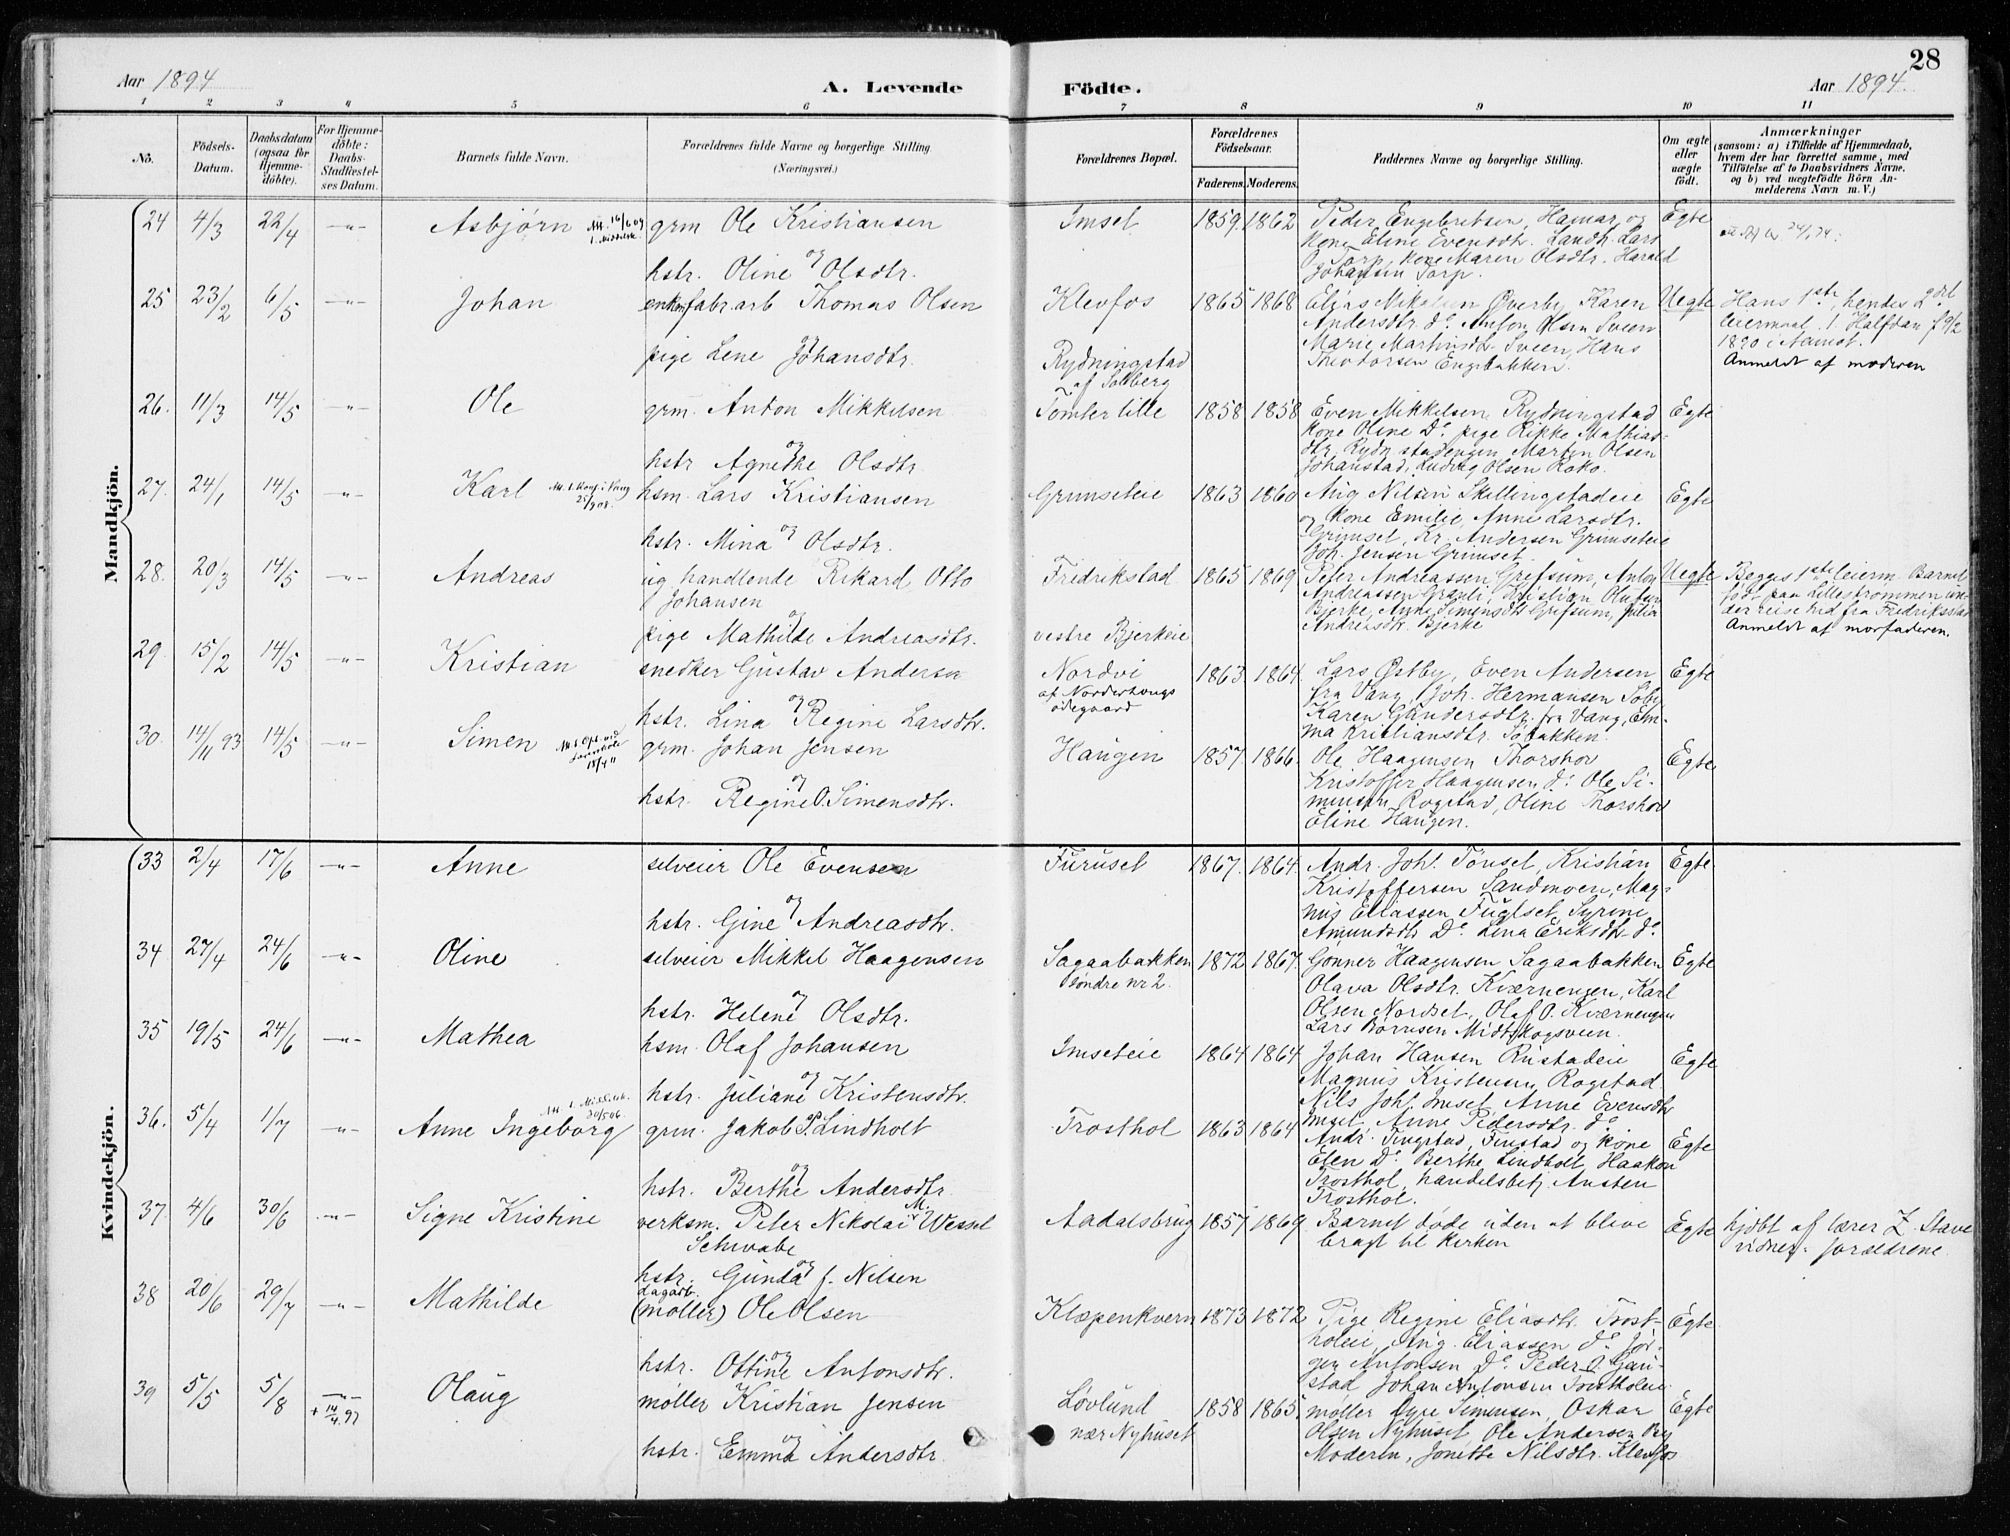 28
Aar 1894
A. Levende
Födte.
Aar 1894.
1 2 3 4 5 6 7 8 9 10 11
No.
Födsels-
Datum.
Daabsdatum
(ogsaa for
Hjemme-
döbte).
For Hjemme-
döbte:
Daabs-
Stadfæstel-
ses Datum.
Barnets fulde Navn.
Forældrenes fulde Navne og borgerlige Stilling
(Næringsvei.)
Forældrenes Bopæl.
Forældrenes
Födselsaar.
Faderens. Moderens.
Faddernes Navne og borgerlige Stilling.
Om ægte
eller
uægte
födt.
Anmærkninger
(saasom: a) i Tilfælde af Hjemmedaab,
hvem der har forrettet samme, med
Tilföielse af to Daabsvidners Navne,
og b) ved uægtefödte Börn An-
melderens Navn m. V.)
Mandkjön.
24 4/3 22/4 -"- Asbjørn
grm Ole Kristiansen
og
hstr. Oline Olsdtr.
Imset 1859. 1862
Peder Engebretsen, Hamar og
kone Eline Evensdtr. Landh. Lars
O Torp, kone Maren Olsdtr. Harald
Johansen Torp.
Egte
25 23/2 6/5 -"- Johan
enkem fabr.arb Thomas Olsen
og
pige Lene Johansdtr.
Klevfos
Rydningstad
af Solberg
1865 1868
Elias Nikolsen Øverby, Karen
Andersdtr. do. Anton Olsen Sveen
Marie Martinsdtr Sveen, Hans
Theodorsen Engebakken.
Uegte
Hans 1ste, hendes 2det
leiermaal. 1. Halfdan f 9/2
1890 i Aamot.
Anmeldt af moderen
26. 11/3 14/5 -"- Ole
grm. Anton Mikkelsen
og
hstr Agnethe Olsdtr.
Tomter lille 1858 1858
Even Mikkelsen Rydningstad
kone Oline Do. pige Rikke Mathias-
dtr. Rydn.stadengen Martin Olsen
Johanstad, Ludvig Olsen Roko.
Egte
27. 24/1 14/5 -"- Karl
hsm. Lars Kristiansen
og
hstr. Mina Olsdtr.
Grimseteie 1863 1860
Aug Nilsen Skillingstadeie
og kone Emilie, Anne Larsdtr.
Grimset, Kr. Andersen Grimseteie
Joh. Jensen Grimset.
Egte
28. 20/3 14/5 -"- Andreas
ug handlende Rikard Otto
Johansen
og
pige Mathilde Andreasdtr.
Fredrikstad
vestre Bjerkeie
1865 1869
Peter Andreassen Grefsum, Anton
Andreassen Granli, Kristian Olufsen
Bjerke, Anne Simensdtr Grefsum, Julia
Andreasdtr. Bjerke
Uegte
Begges 1ste leierm. Barnet
født paa Lillestrømmen un-
der reise hid fra Fredrikstad
Anmeldt af morfaderen.
29. 15/2 14/5 -"- Kristian
snedker Gustav Andersen
og
hstr. Lina Regine Larsdtr.
Nordvi
af Norderhougs
ødegaard
1863 1864
Lars Østby, Even Andersen
fra Vang, Joh. Hermansen Søby
Karen Gundersdtr. fra Vang, Em-
ma Kristiansdtr. Søbakken.
Egte
30. 14/11 93 14/5 -"- Simen
grm. Johan Jensen
og
hstr. Regine O. Simensdtr.
Haugen 1857. 1866.
Ole Haagensen Thorshov
Kristoffer Haagensen do. Ole Si-
mensen Rogstad, Oline Thorshov
Eline Haugen.
Egte
Kvindekjön.
33 2/4 17/6 -"- Anne
selveier Ole Evensen
og
hstr. Gine Andreasdtr.
Furuset 1867. 1864.
Andr. Johs. Tønset, Kristian
Kristoffersen Sandmoen, Mag-
nus Eliassen Fuglset, Syrine
Amundsdtr Do. Lina Eriksdtr do.
Egte
34 27/4 24/6 -"- Oline
selveier Mikkel Haagensen
og
hstr. Helene Olsdtr.
Sagaabakken
søndre nr 2.
1872 1867.
Gunner Haagensen Sagaabakken
Olava Olsdtr. Kværnengen, Karl
Olsen Nordset, Olaf O. Kværnengen
Lars Børresen Midtskogsveen.
Egte
35 19/5 24/6 -"- Mathea
hsm. Olaf Johansen
og
hstr. Juliane Kristensdtr.
Imseteie 1864 1864
Johan Hansen Rustadeie
Magnus Kristensen Rogstad
Nils Johs. Imset, Anne Evensdtr
Imset, Anne Pedersdtr. do.
Egte
36. 5/4 1/7 -"- Anne Ingeborg
grm. Jakob P. Lindholt
og
hstr. Berthe Andersdtr.
Trosthol 1863 1864
Andr. Finstad, Finstad og kone
Elen Do. Berthe Lindholt, Haakon
Trosthol, handelsbetj. Austen
Trosthol.
Egte
37. 4/6 30/6 -"- Signe Kristine
verksm. Peter Nikolai M. Wessel
Schwabe
og
hstr. Gunda f. Nilsen
Aadalsbrug 1857 1869
Barnet døde uden at blive
bragt til kirken
Egte
hjdbt af lærer Z. Stave
vidner: forældrene.
38 20/6 29/7 -"- Mathilde
dagarb.
(møller) Ole Olsen
og
hstr. Ottine Antonsdtr.
Klæpenkvern 1873 1872
Pige Regine Eliasdtr. Trost-
holeie, Aug. Eliassen do. Jør-
gen Antonsen Do. Peder J. Gau-
stad, Johan Antonsen Trostholeie
Egte
39 5/5 5/8 -"- Olaug
+ 14/4.97
møller Kristian Jensen
og
hstr. Emma Andersdtr.
Løvlund
nær Nyhuset
1858 1865.
møller Dyre Simensen, Oskar
Olsen Nyhuset, Ole Andersen Ry
Moderen, Jonette Nilsdtr. Klevfos
Egte